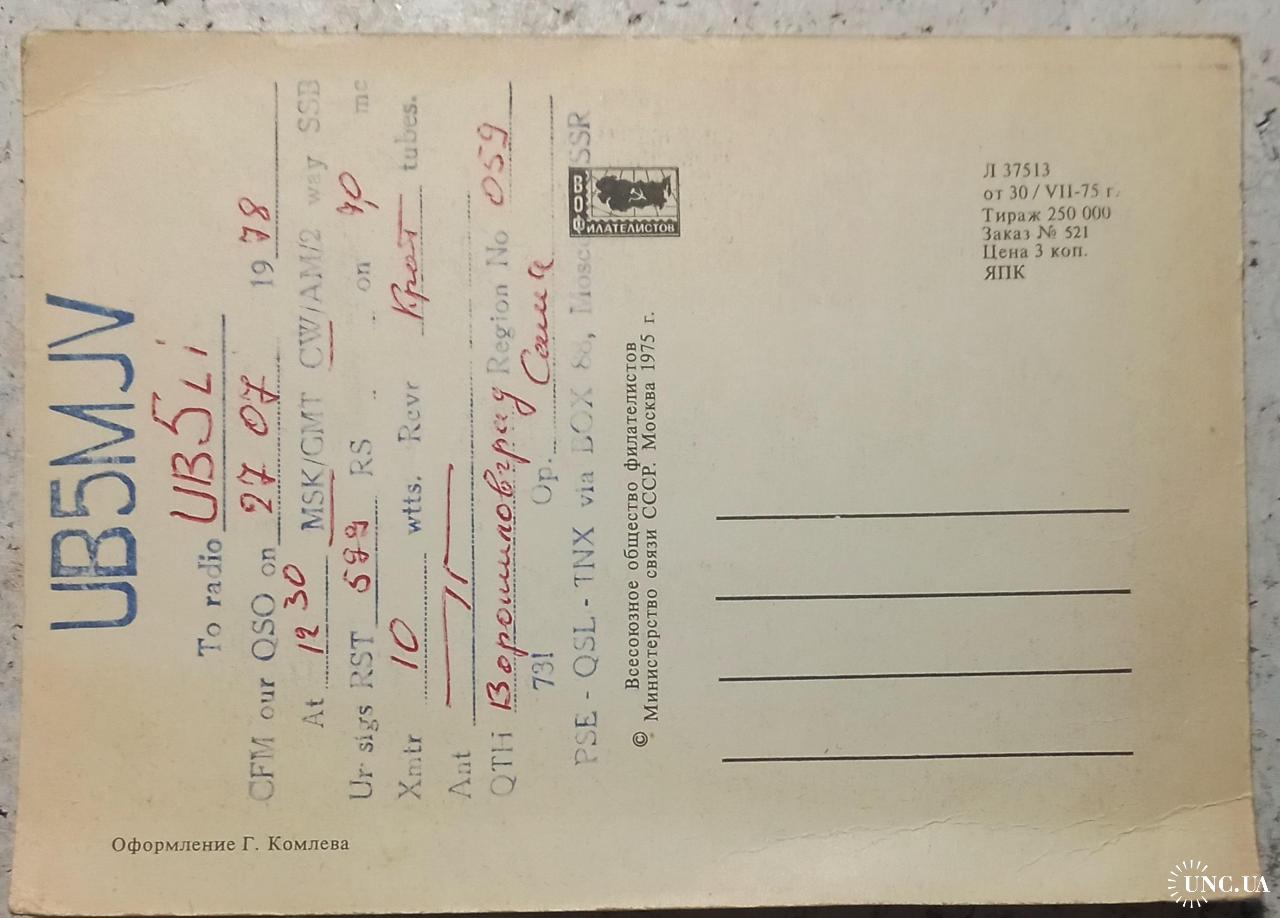 UB5MJV
To radio UB5Li
CFM our QSO on 27 07 1978
At 12 30 MSK/GMT CW/AM/2 way SSB
Ur sigs RST 599 RS on mc
Xmtr 10 wtts. Rcvr Крот tubes.
Ant
QTH Ворошиловград Region No 059
731 Op. Саша
PSE - QSL - TNX via BOX 88, Moscow SSR
ВОФИЛАТЕЛИСТОВ
Всесоюзное общество филателистов
© Министерство связи СССР. Москва 1975 г.
Оформление Г. Комлева
Л 37513
от 30 / VII-75 г.
Тираж 250 000
Заказ № 521
Цена 3 коп.
ЯПК
UNC.UA